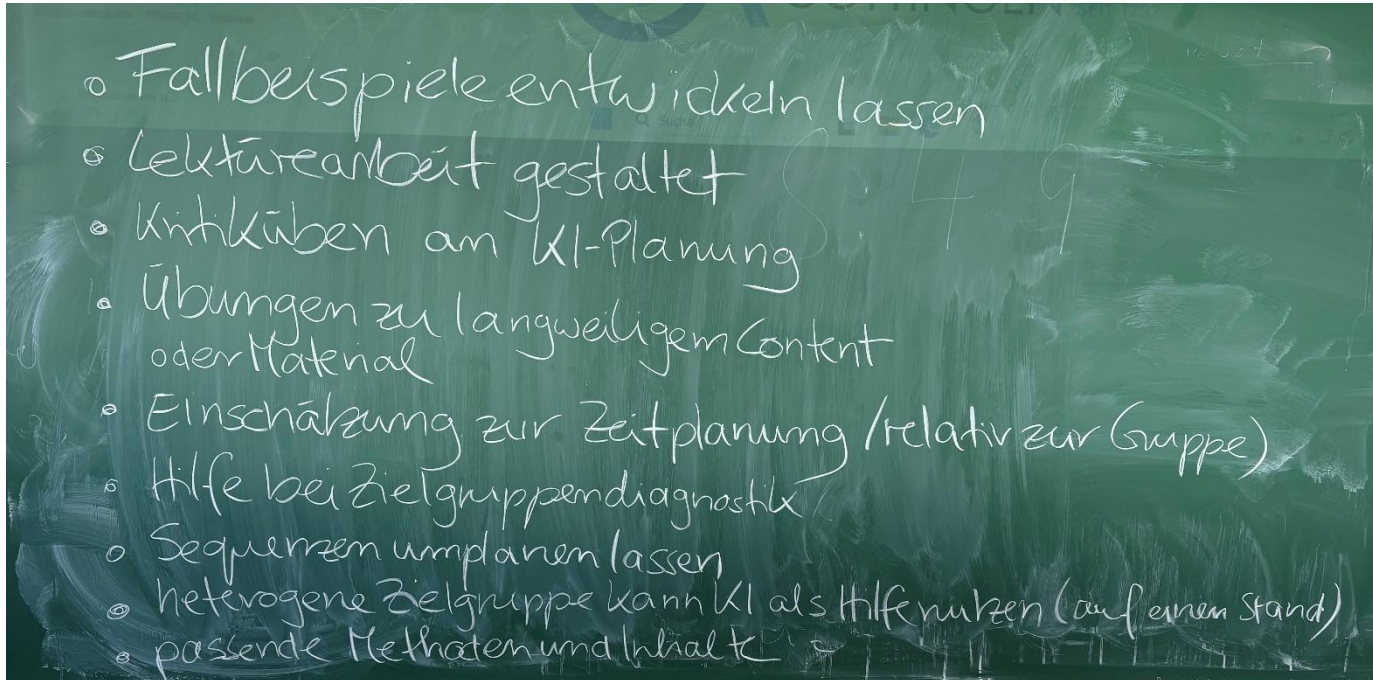 GÖTTINGEN
Suche
o Fallbeispiele entwickeln lassen
o Lektürearbeit gestaltet
o Kritik üben am KI-Planung
o Übungen zu langweiligem Content
oder Material
o Einschätzung zur Zeitplanung /relativ zur Gruppe)
o Hilfe bei Zielgruppendiagnostik
o Sequenzen umplanen lassen
o heterogene Zielgruppe kann KI als Hilfe nutzen (auf einen Stand)
o passende Methoden und Inhalte